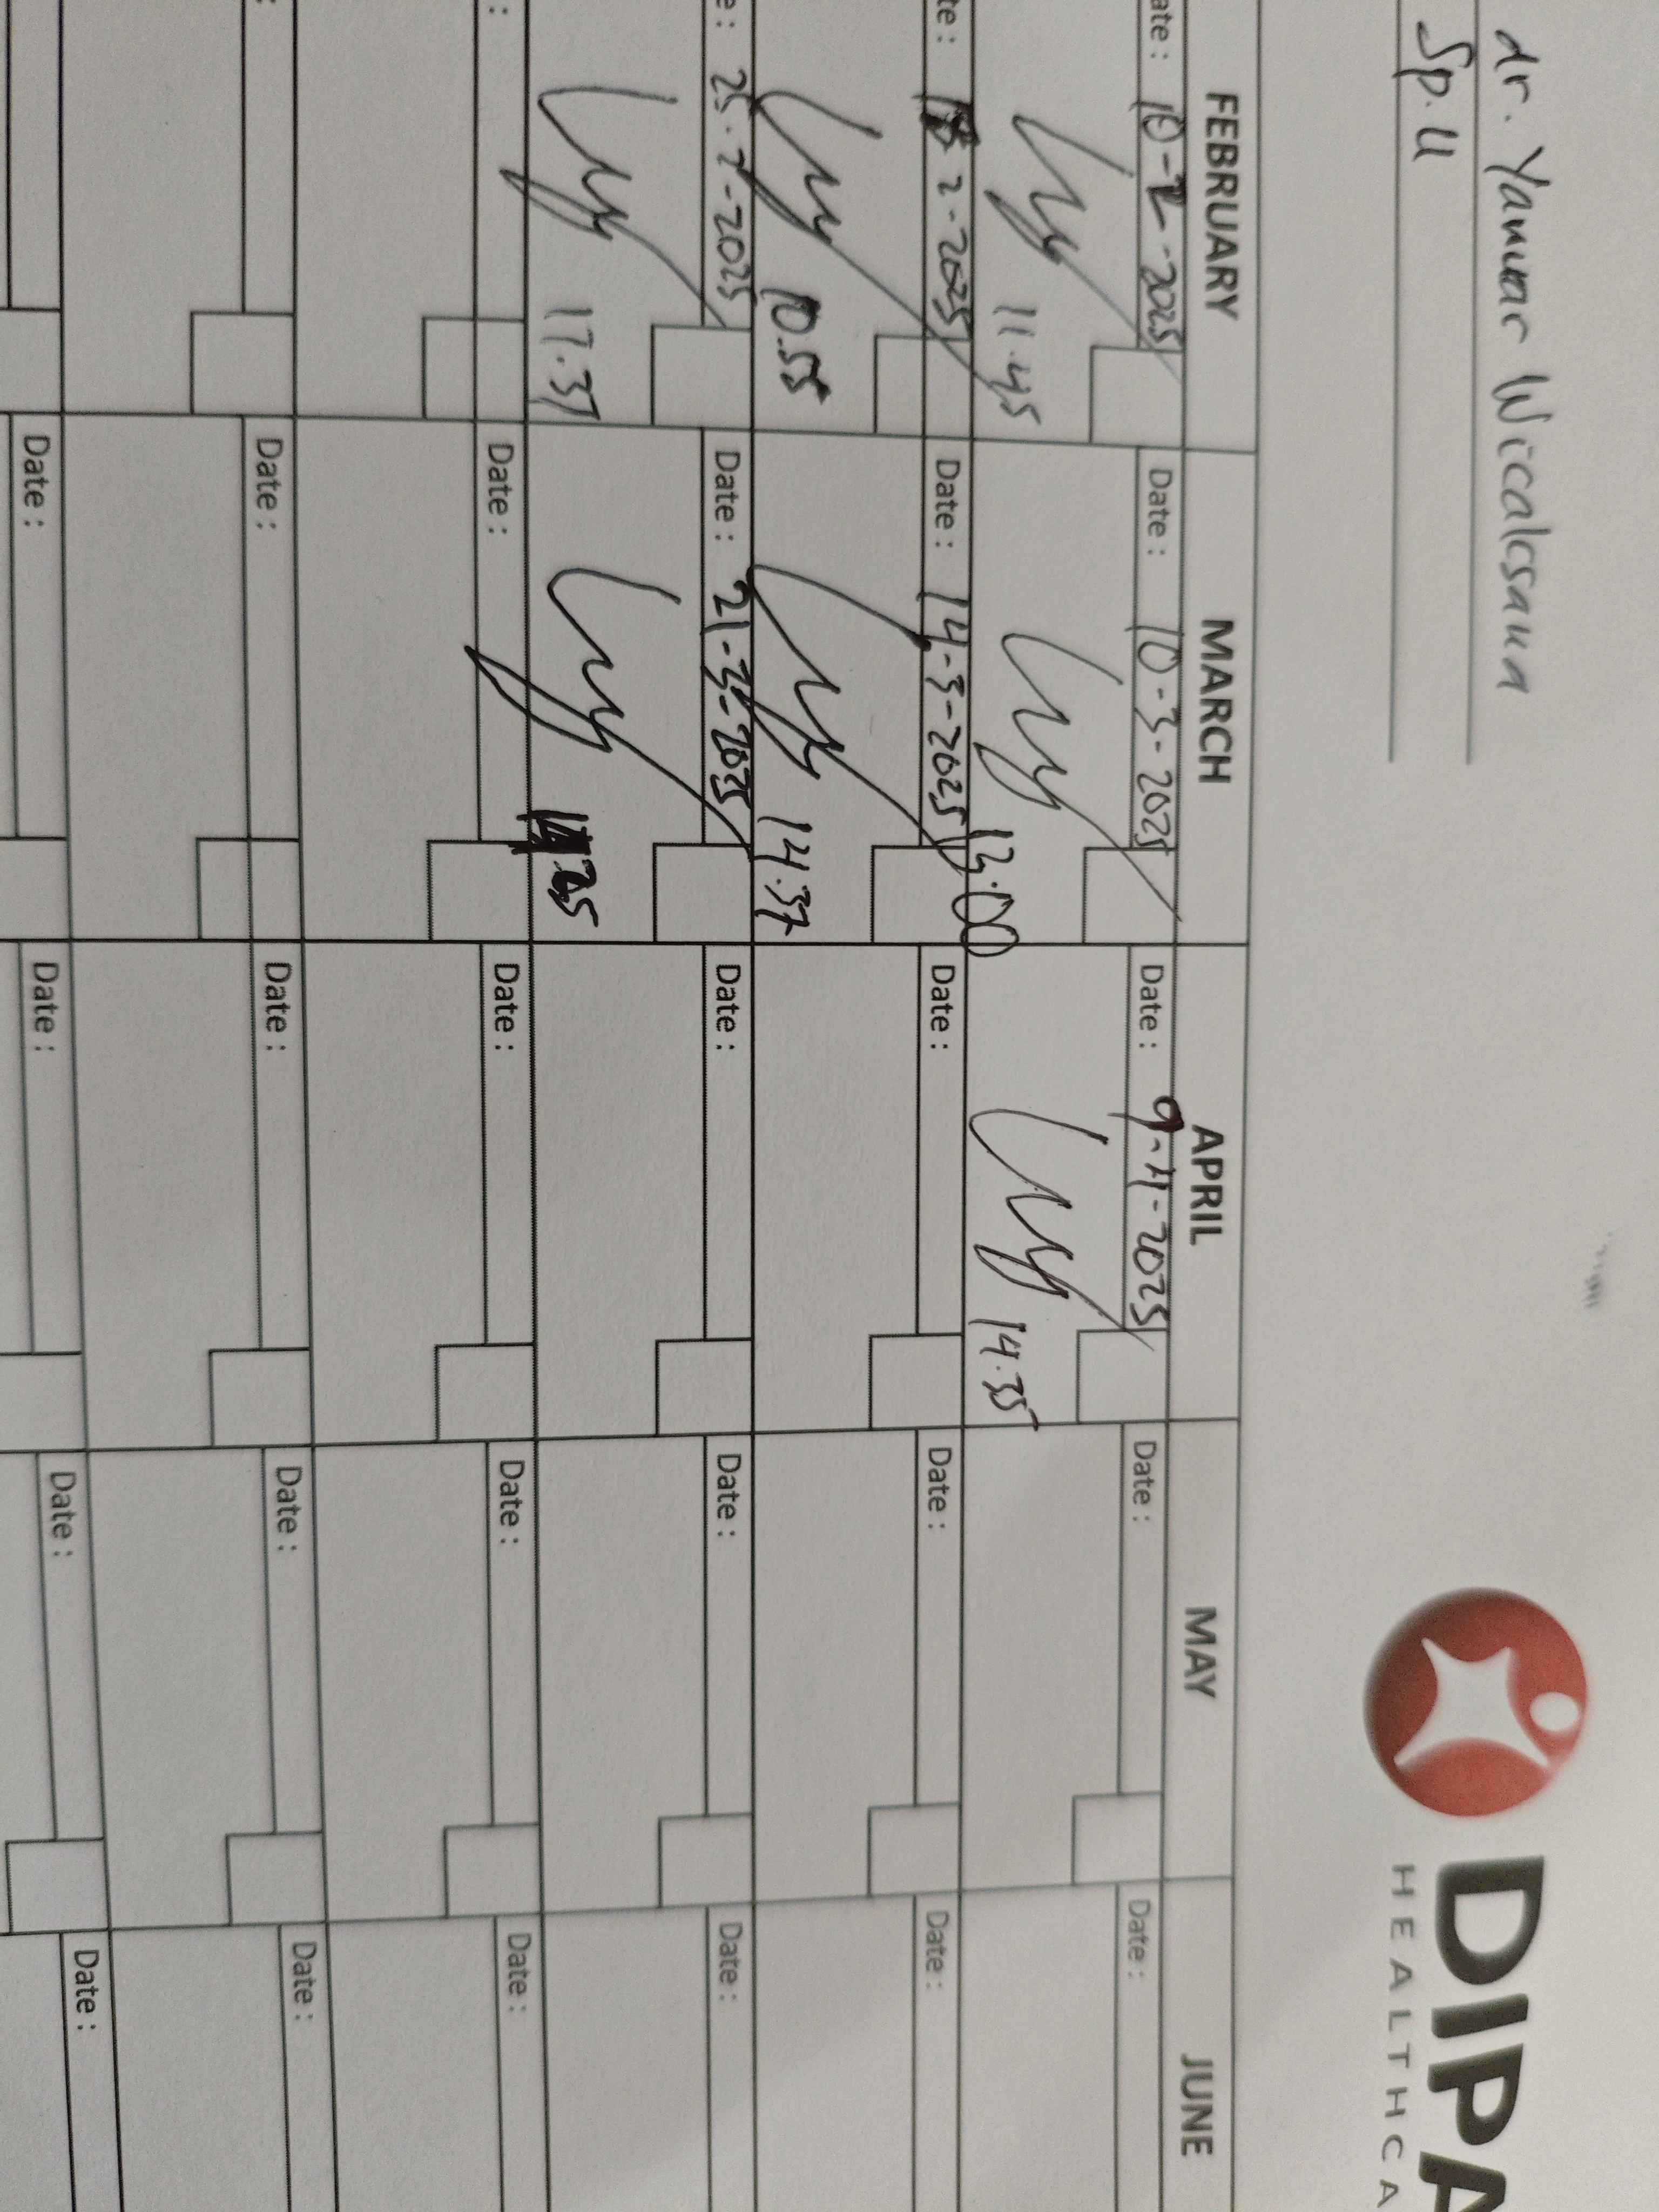 dr. Yanuar Wicaksana
Sp.U
DIPA
HEALTHCA
FEBRUARY MARCH APRIL MAY JUNE
ate : 10-2-2025 Date : 10-3-2025 Date : 9-4-2025 Date : Date :
11.45 13.00 14.35
te : 2-2025 Date : 14-3-2025 Date : Date : Date :
10.55 14.37
e : 25-2-2025 Date : 21-3-2025 Date : Date : Date :
17.37 25
: Date : Date : Date : Date :
: Date : Date : Date : Date :
Date : Date : Date : Date :